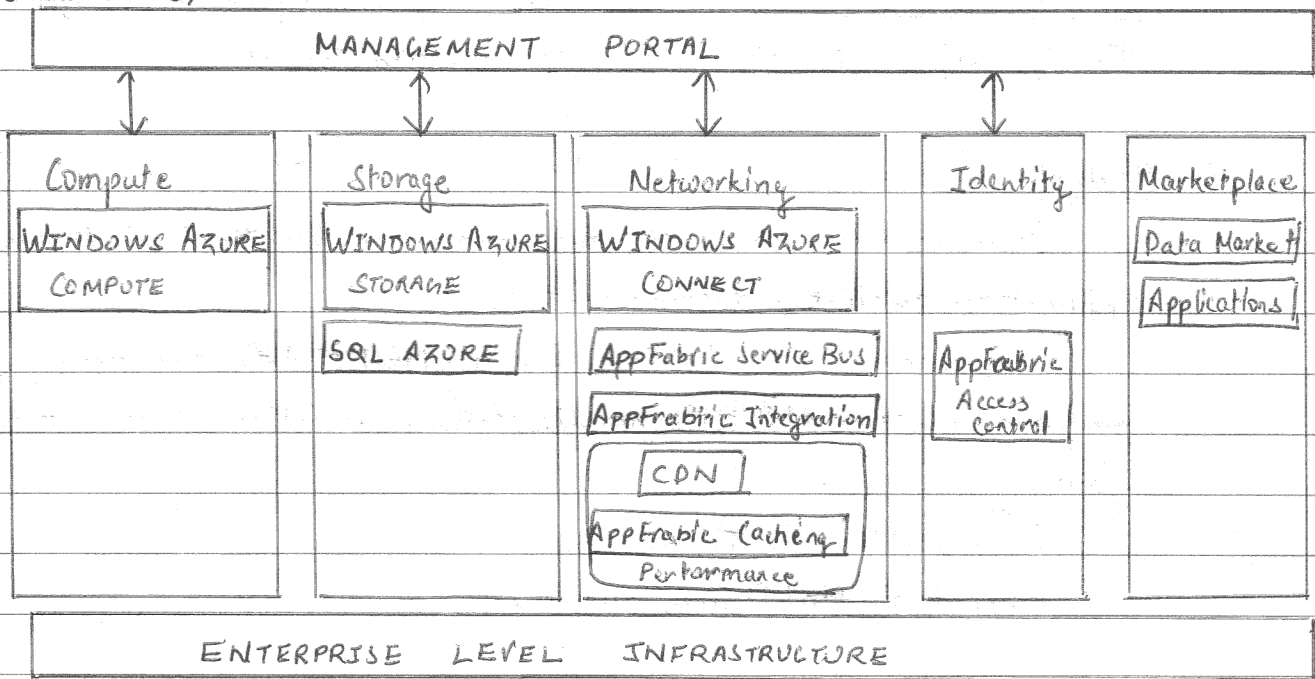 MANAGEMENT PORTAL
Compute
WINDOWS AZURE
COMPUTE
Storage
WINDOWS AZURE
STORAGE
SQL AZURE
Networking
WINDOWS AZURE
CONNECT
AppFabric Service Bus
AppFrabric Integration
CDN
AppFrabic Caching
Performance
Identity
AppFrabric
Access
Control
Marketplace
Data Market
Applications
ENTERPRISE LEVEL INFRASTRUCTURE